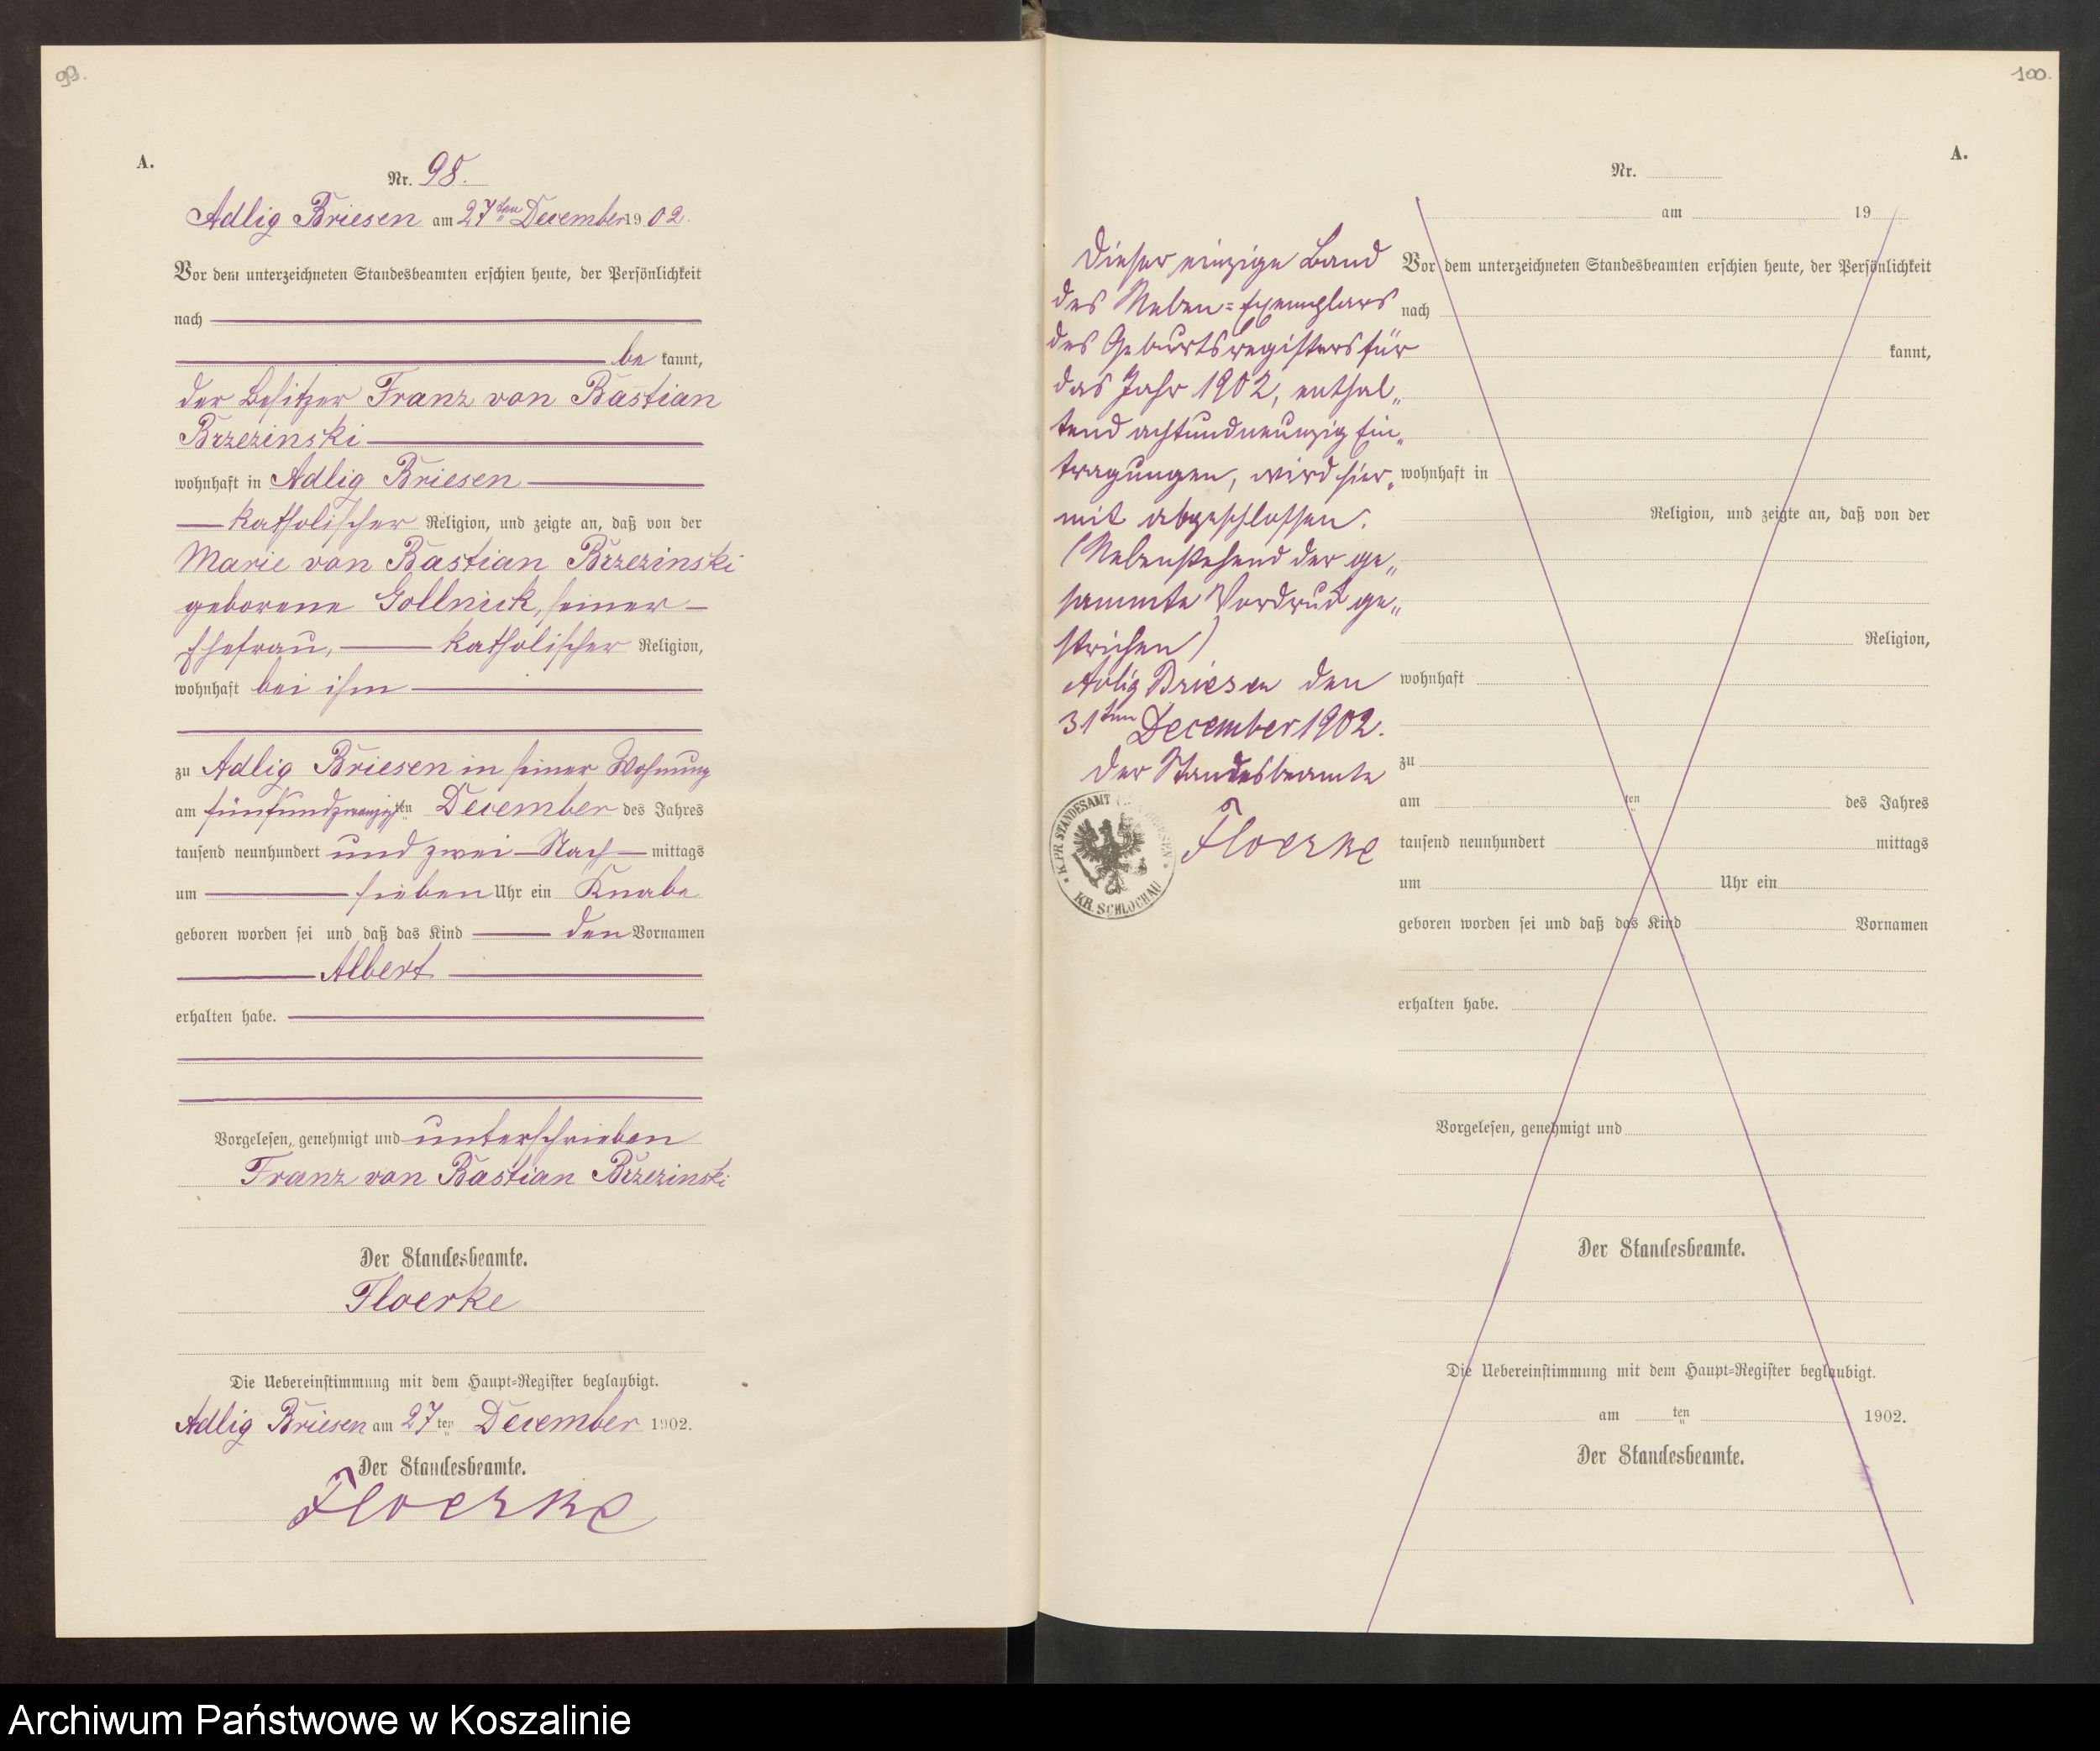 99.
A.
Nr. 98.
Adlig Briesen am 27ten December 1902.
Vor dem unterzeichneten Standesbeamten erschien heute, der Persönlichkeit
nach
be kannt,
der Besitzer Franz von Bastian
Brzezinski
wohnhaft in Adlig Briesen
katholischer Religion, und zeigte an, daß von der
Marie von Bastian Brzezinski
geborene Gollnick, seiner
Ehefrau, katholischer Religion,
wohnhaft bei ihm
zu Adlig Briesen in seiner Wohnung
am fünfundzwanzigsten December des Jahres
tausend neunhundert und zwei Nach mittags
um sieben Uhr ein Knabe
geboren worden sei und daß das Kind den Vornamen
Albert
erhalten habe.
Vorgelesen, genehmigt und unterschrieben
Franz von Bastian Brzezinski
Der Standesbeamte.
Floerke
Die Uebereinstimmung mit dem Haupt-Register beglaubigt.
Adlig Briesen am 27ten December 1902.
Der Standesbeamte.
Floerke
100.
A.
Dieser einzige Band
des Neben-Exemplars
des Geburtsregisters für
das Jahr 1902, enthal-
tend achtundneunzig Ein-
tragungen, wird hier-
mit abgeschlossen.
(Nebenstehend der ge-
sammte Vordruck ge-
strichen)
Adlig Briesen den
31ten December 1902.
Der Standesbeamte
Floerke
K. PR. STANDESAMT BRIESEN
KR. SCHLOCHAU
Nr.
am 19
Vor dem unterzeichneten Standesbeamten erschien heute, der Persönlichkeit
nach
kannt,
wohnhaft in
Religion, und zeigte an, daß von der
Religion,
wohnhaft
zu
am ten des Jahres
tausend neunhundert mittags
um Uhr ein
geboren worden sei und daß das Kind Vornamen
erhalten habe.
Vorgelesen, genehmigt und
Der Standesbeamte.
Die Uebereinstimmung mit dem Haupt-Register beglaubigt.
am ten 1902.
Der Standesbeamte.
Archiwum Państwowe w Koszalinie